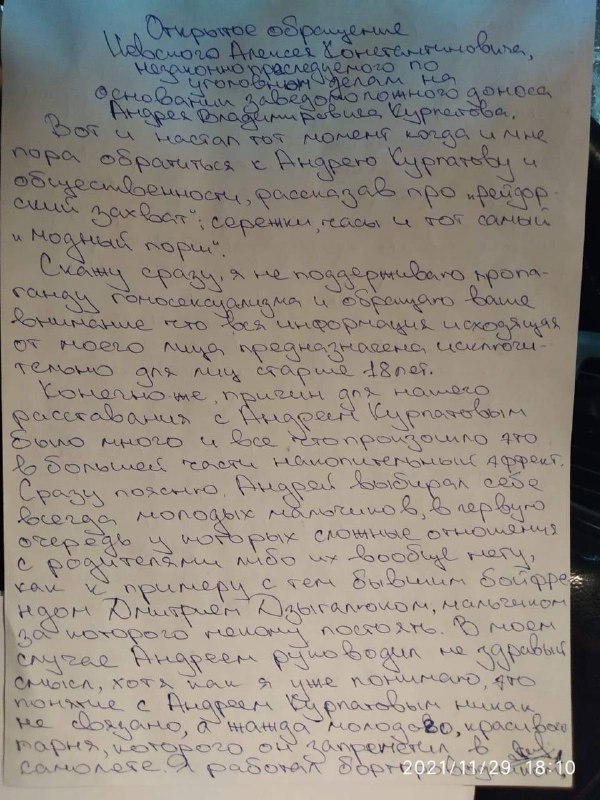 Открытое обращение
Цевского Алексея Константиновича,
незаконно преследуемого по
уголовным делам на
основании заведомо ложного доноса
Андрея Владимировича Курпатова.
Вот и настал тот момент когда и мне
пора обратиться к Андрею Курпатову и
общественности, рассказав про "рейдер-
ский захват"; сережки, часы и тот самый
"модный порш".
Скажу сразу, я не поддерживаю пропа-
ганду гомосексуализма и обращаю ваше
внимание что вся информация исходящая
от моего лица предназначена исключи-
тельно для лиц старше 18 лет.
Конечно же, причин для нашего
расставания с Андреем Курпатовым
было много и все что произошло это
в большей части накопительный эффект.
Сразу поясню, Андрей выбирал себе
всегда молодых мальчиков, в первую
очередь у которых сложные отношения
с родителями либо их вообще нету,
как к примеру с тем бывшим бойфре
ндом Дмитрием Дзыгалюком, мальчиком
за которого некому постоять. В моем
случае Андреем руководил не здравый
смысл, хотя как я уже понимаю, это
понятие с Андреем Курпатовым никак
не связано, а жажда молодого, красивого
парня, которого он запреметил в
самолете. Я работал
2021/11/29 18:10